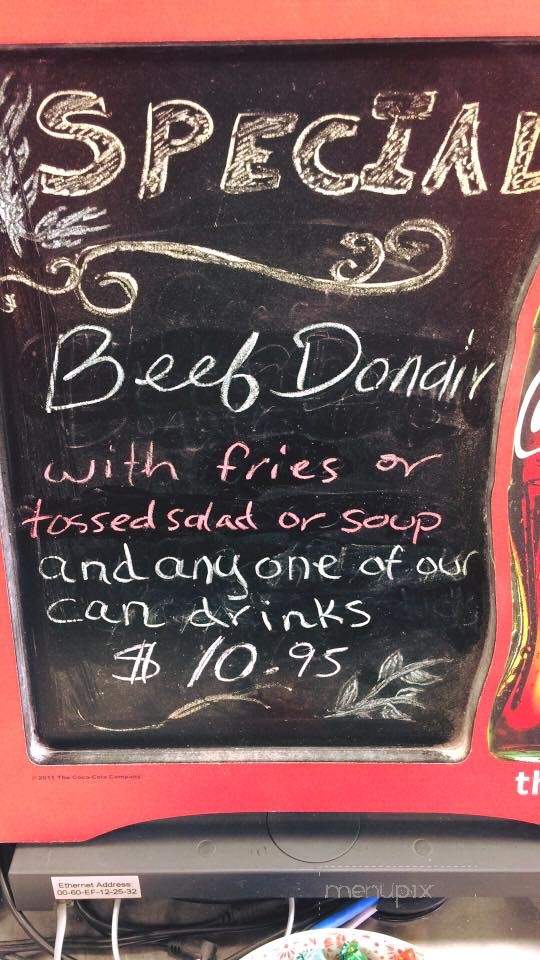 SPECIAL
Beef Donair
with fries or
tossed salad or soup
and any one of our
can drinks
$ 10.95
© 2011 The Coca-Cola Company
th
Ethernet Address
00-60-EF-12-25-32
menupix